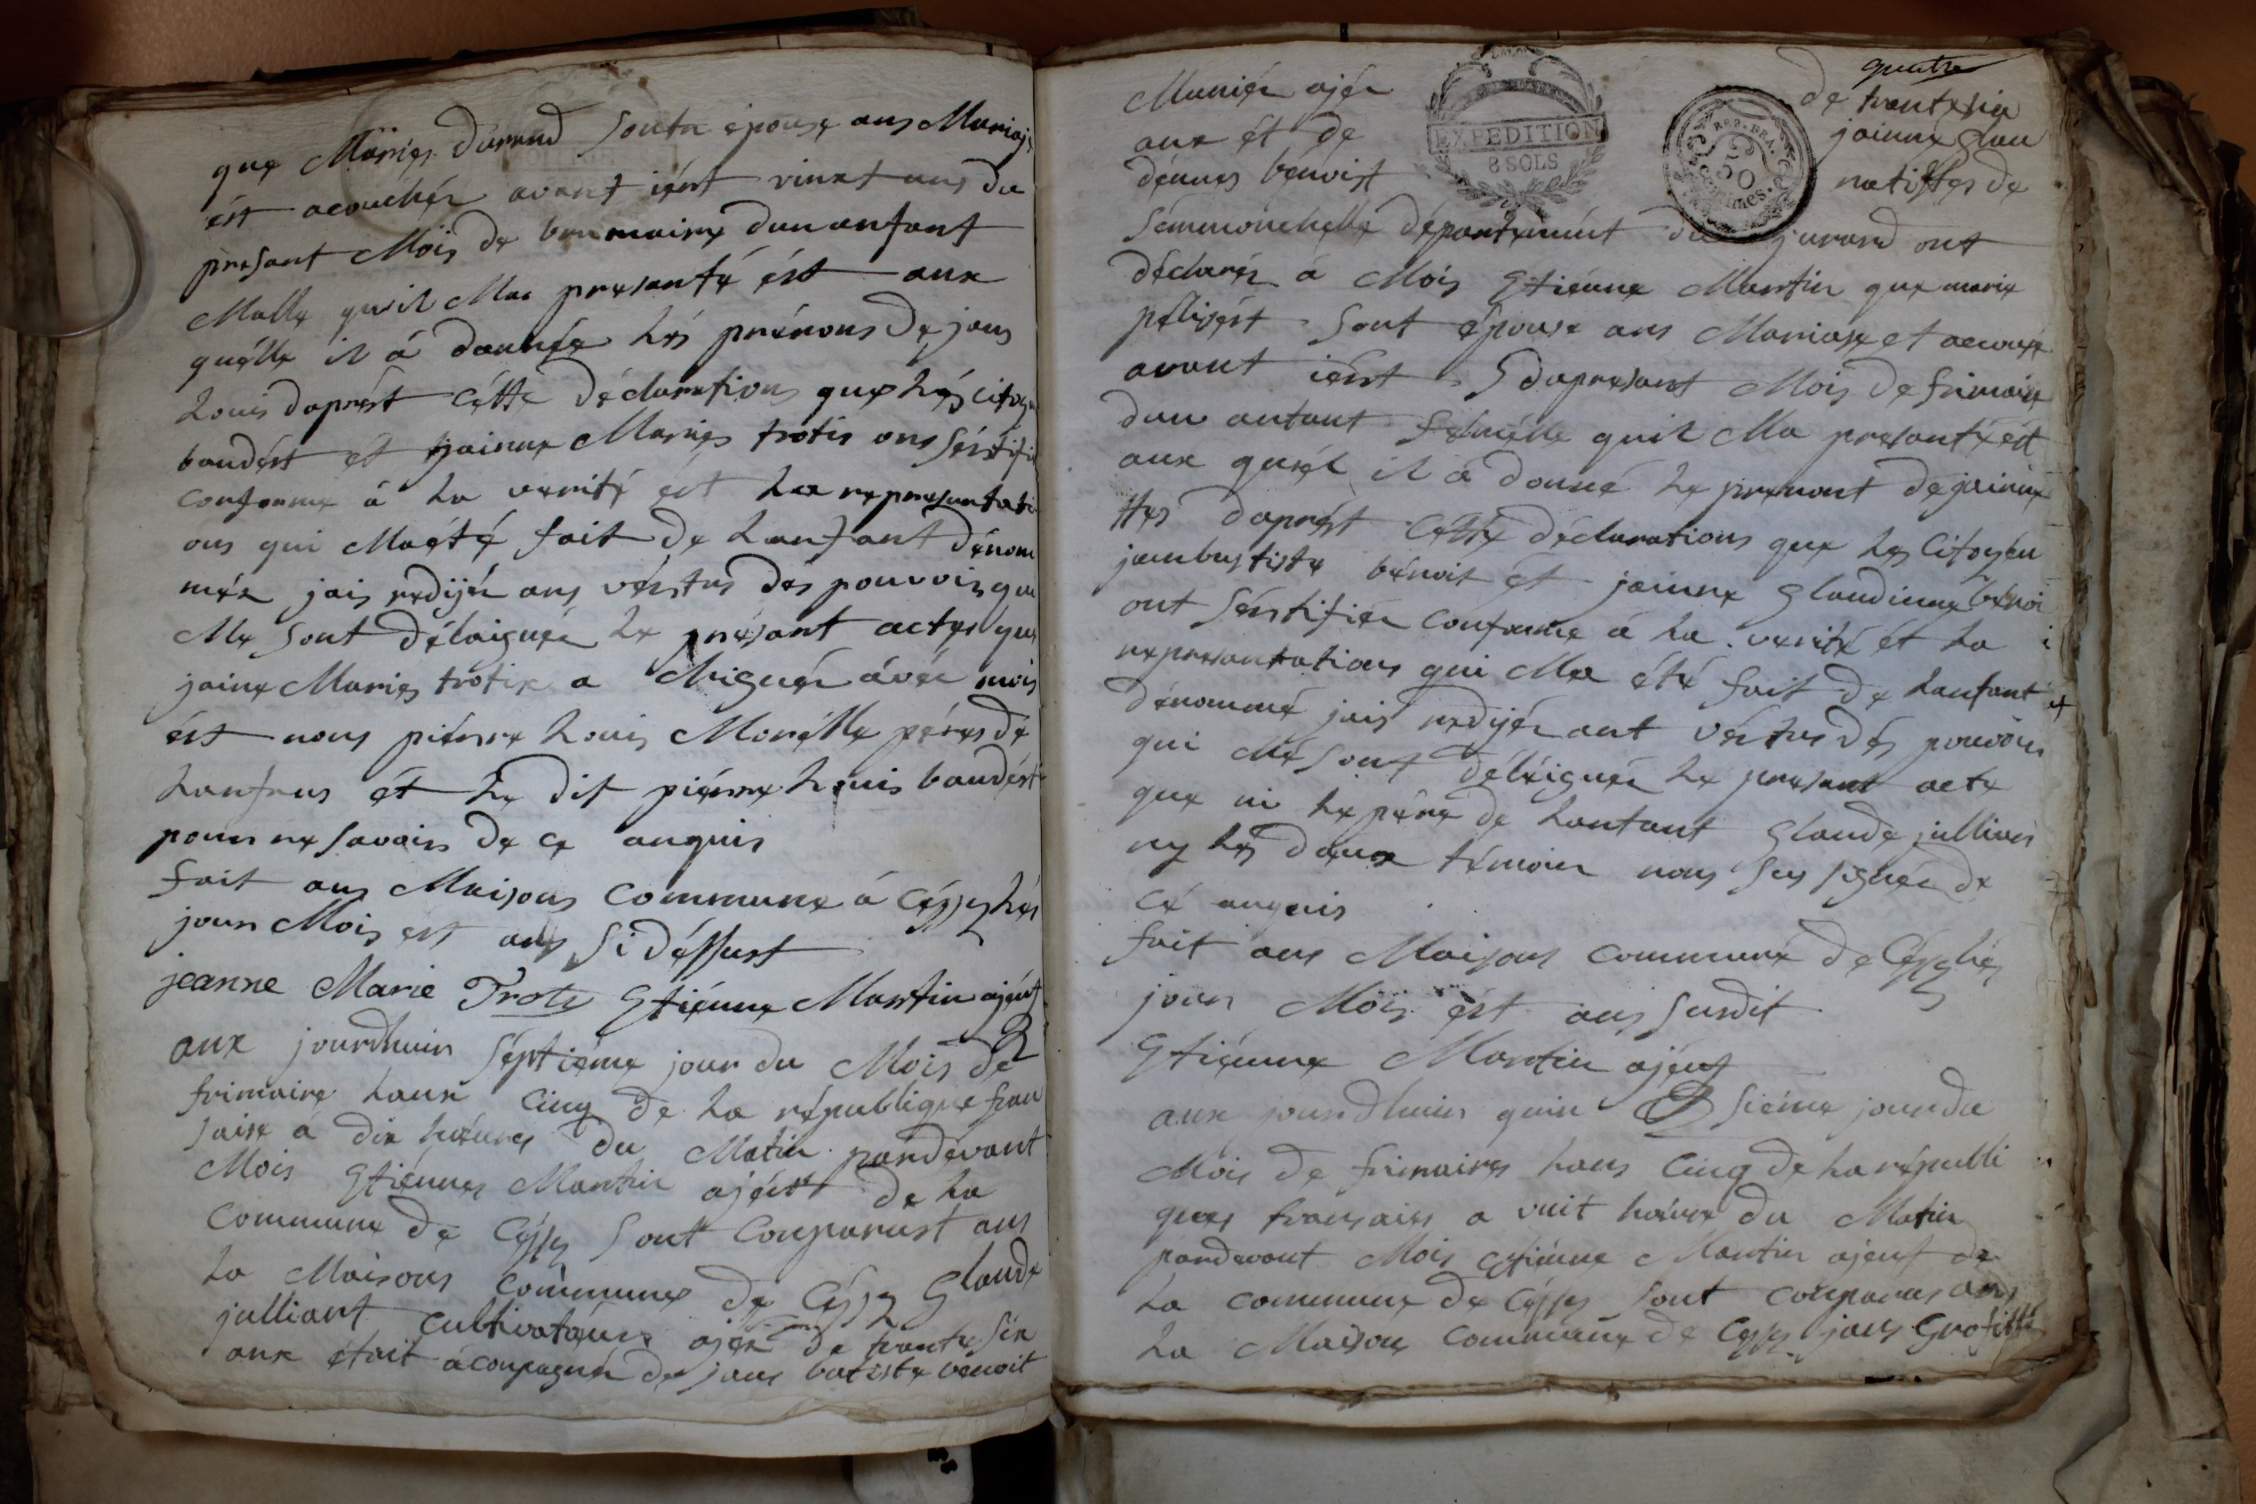 que Maries durand sonta epouse ans Mariaje
ést acouchér avant iért vinxt ans du
presant Mois de brumaire dun anfant
Malle quil Maa presanté ést aux
quélle il á donnée lés prénons de jans
Louis daprést cétte déclarations que lés citoyen
baudést et jainne Maries trotis ons sértifié
conforme á la verité ést la represantati
ons qui Maété fait de Lanfant dénom
mér jais redijér ans véstus dés pouvoir qui
Me sont délaiguér le présant actes que
jaine Maries trotix a Chignér avéc mois
ést nous piérre Louis Morélle péres de
Lanfans ét le dit piérre Louis baudést
pour ne savoir de ce anquis
fait ans Maisons commune á Céssy lés
jour Mois ést ans si déssust
jeanne Marie Trotz Etiénne Martin ajént
aux jourdhuin séptiéme jour du Mois de
frimaire Lanx cinq de La république fran
saise á dix hœures du Matin pardevant
Mois Etiénnes Martin ajént de La
commune de Céssy sont conparust ans
La Maisons commune de Céssy Glaude
julliant cultivatœurs ajér de trante six
anx était áconpagnér de jans batiste benoit
quatre
Maniér ajér de trante six
anx ét de jainne Glau
dénnes benoist natiffes de
Semmouchelle départemént du jurard ont
déclarér á Mois Etiénne Martin que marie
péligést sont épouse ans Mariaje et acouxé
avant iérst 5 dupresant Mois de frimaire
dun anfant fémélle quil Ma presanté ést
aux quél il á donné le prenont de jainne
ttes daprést cétte déclarations que les citoyén
janbustiste bénoit et jainne Glaudinne bénoi
ont sérstifiér conforme á la verité et la
represantations qui Ma été fait de Lanfant
dénommé jais redijér ant vérstus dés pouvoir
qui Mé sont déléiguér le presant acte
que ni le pére de Lanfant Glaude jullians
ny lés daux témoin nons ses signér de
cé anquis
fait ans Maisons commune de Céssy lés
jour Mois ést ans susdit
Etiénne Martin ajént
aux jourdhuin quin siéme jour du
Mois de frimaires Lans cinq de La républi
ques fransaises a vuit hœure du Matin
pardevant Mois Etiénne Martin ajent de
La commune de Céssy sont conparus ans
La Maison commune de Cessy jans
EXPEDITION
8 SOLS
REP. FRA.
50
Centimes.